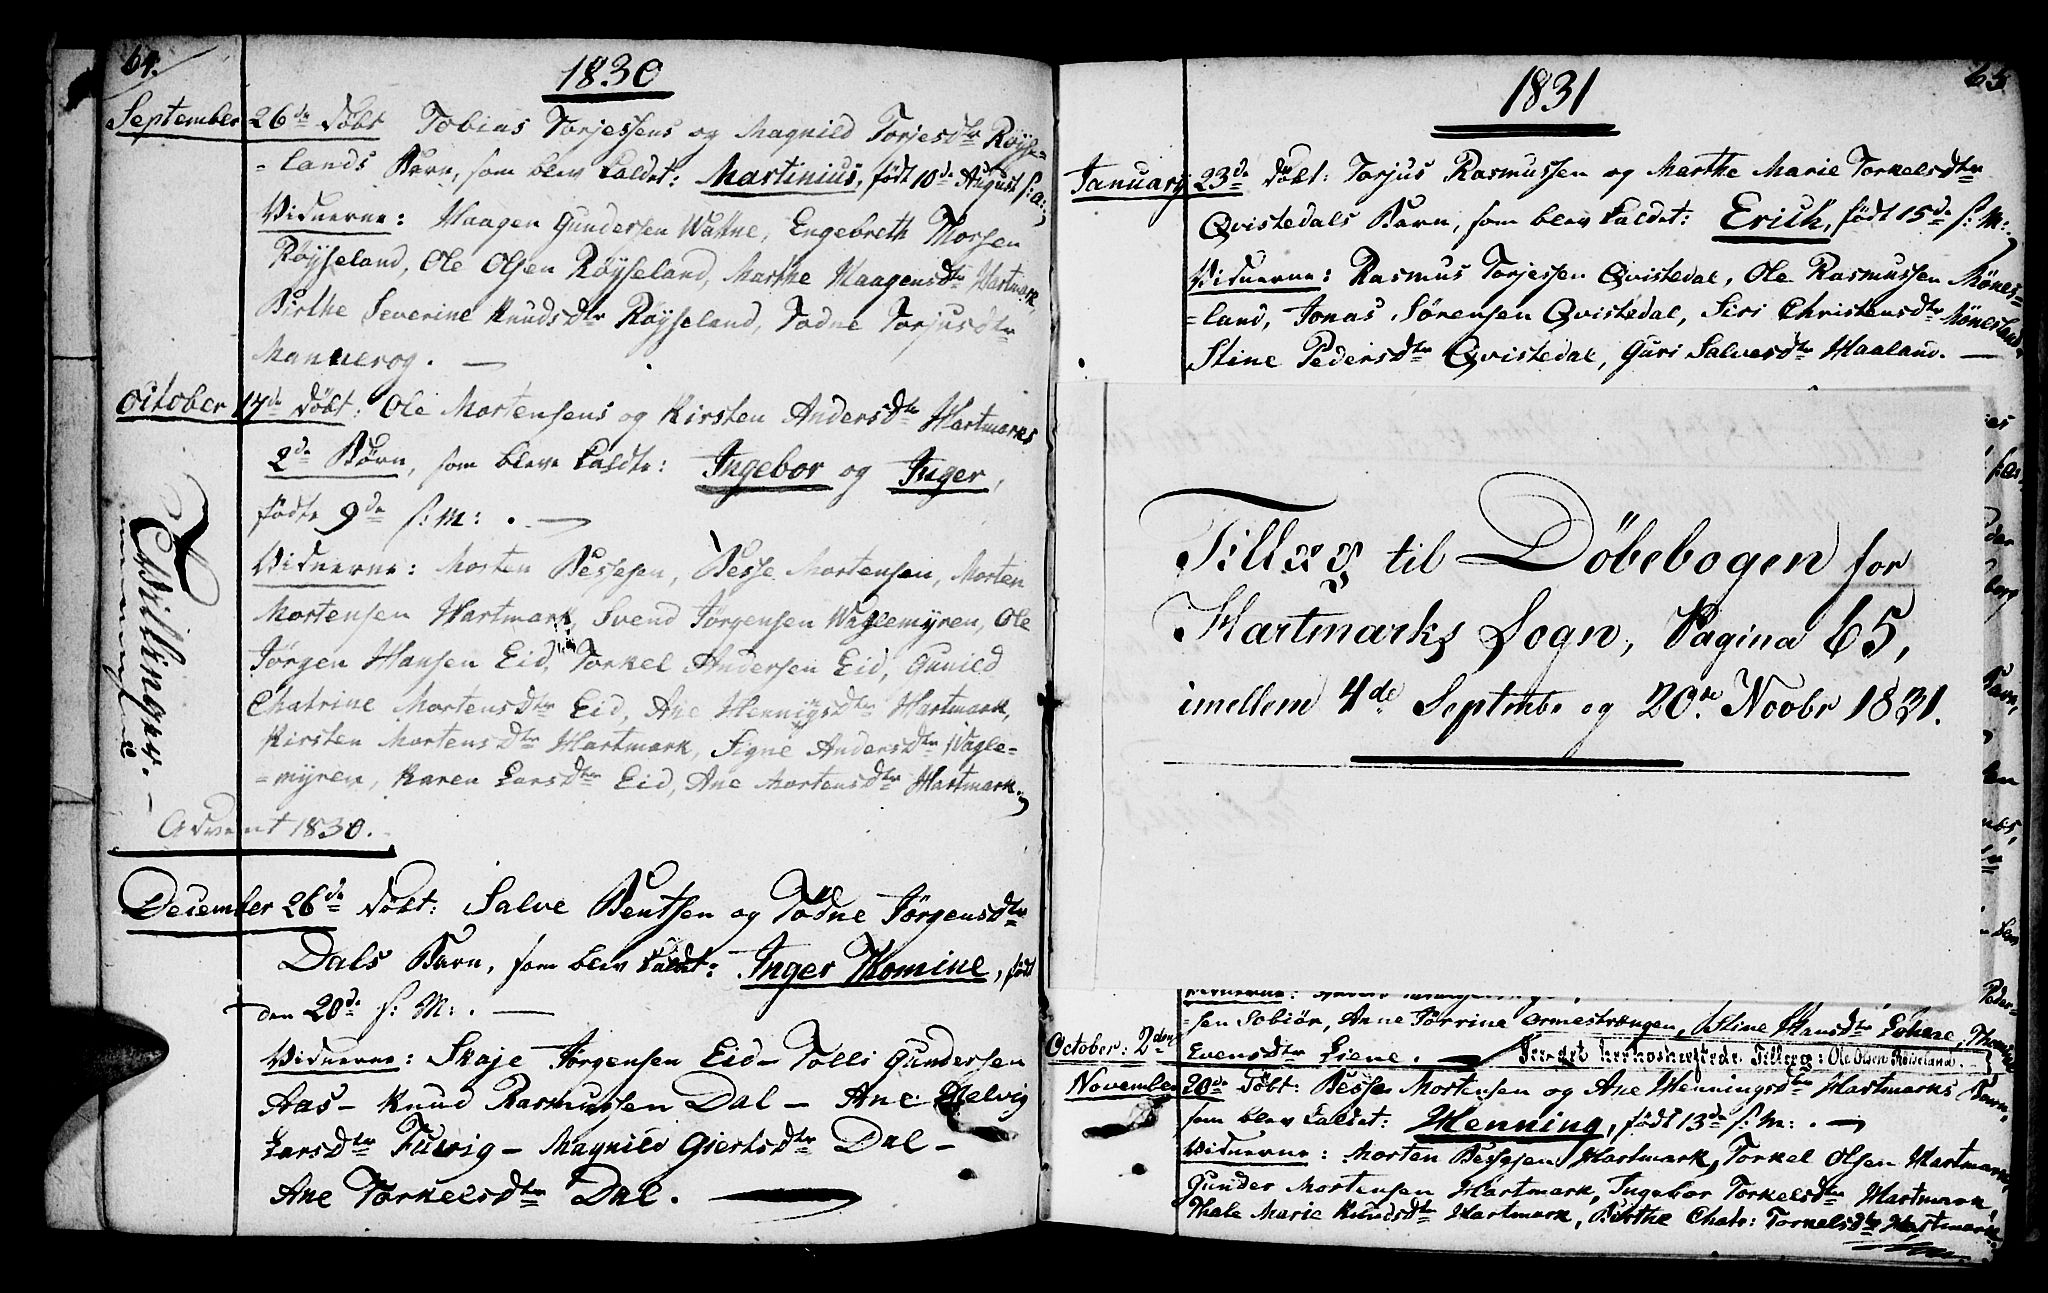 64.
1830
September 26de Döbt Tobias Torjessens og Magnild Torjesdtr Röyse-
-lands Barn, som blev kaldet: Martinius, födt 10de August s: a:,
Vidnerne: Haagen Gundersen Watne, Engebreth
Röyseland, Ole Olsen Röyseland, Marthe Haagensdtr Hartmark,
Birthe Severine Knudsdtr Röyseland, Todne Torjusdtr
Mannerog. —
October 17de Döbt: Ole Mortensens og Kirsten Andersdtr Hartmarks
2de Börn, som bleve kaldte: Ingebor og Inger,
födte 9de s: M: . —
Vidnerne: Morten Bessesen, Besse Mortensen, Morten
Mortensen Hartmark, Svend Jörgensen Waglemyren, Ole
Jörgen Hansen Eid, Torkel Andersen Eid, Gunild
Chatrine Mortensdtr Eid, Ane Henningsdtr Hartmark,
Kirsten Mortensdtr Hartmark, Signe Andersdtr Wagle-
-myren, Karen Larsdtr Eid, Ane Mortensdtr Hartmark.,
Tvillinger. —
Advent 1830.
December 26de Döbt: Salve Bentsen og Todne Jörgensdtr
Dals Barn, som blev kaldet: Inger Thomine, födt
den 20de s: M: . —
Vidnerne: Skaje Jörgensen Eid — Tolli Gundersen
Aas — Knud Rasmussen Dal — Ane Helvig
Larsdtr — Magnild Giertsdtr Dal —
Ane Torkelsdtr Dal. —
65
1831
January 23de Döbt: Torjus Rasmussen og Marthe Marie Torkelsdtr
Qvistedals Barn, som blev kaldet: Erich, födt 15de s: M:,
Vidnerne: Rasmus Torjessen Qvistedal, Ole Rasmussen Mönes-
-land, Jonas Sörensen Qvistedal, Siri Christensdtr Mönesland,
Stine Pedersdtr Qvistedal, Guri Salvesdtr Haaland. —
Tillæg til Döbebogen for
Hartmarks Sogn, Pagina 65,
imellem 4de Septembr og 20de Novbr 1831.
Vidnerne:
-sen Sobiör, Anne Törrine Ormestrængen, Stine Hansdtr
October: 2den Evensdtr Liene. — Ole Olsen Röiseland.
November 20de Döbt: Besse Mortensen og Ane Henningsdtr Hartmarks Barn,
som blev kaldet: Henning, födt 13de s: M: . —
Vidnerne: Morten Bessesen Hartmark, Torkel Olsen Hartmark,
Gunder Mortensen Hartmark, Ingebor Torkelsdtr Hartmark,
Thale Marie Knudsdtr Hartmark, Birthe Chatr: Torkelsdtr Hartmark.